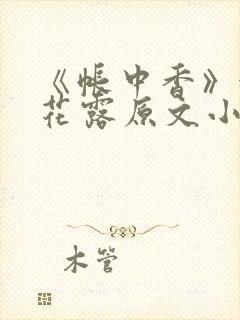 《帐中香》
花露原文小
木管